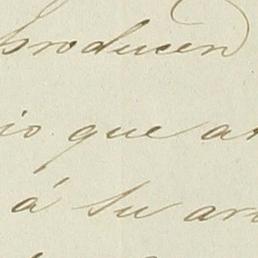 producen
io que an
á su ar